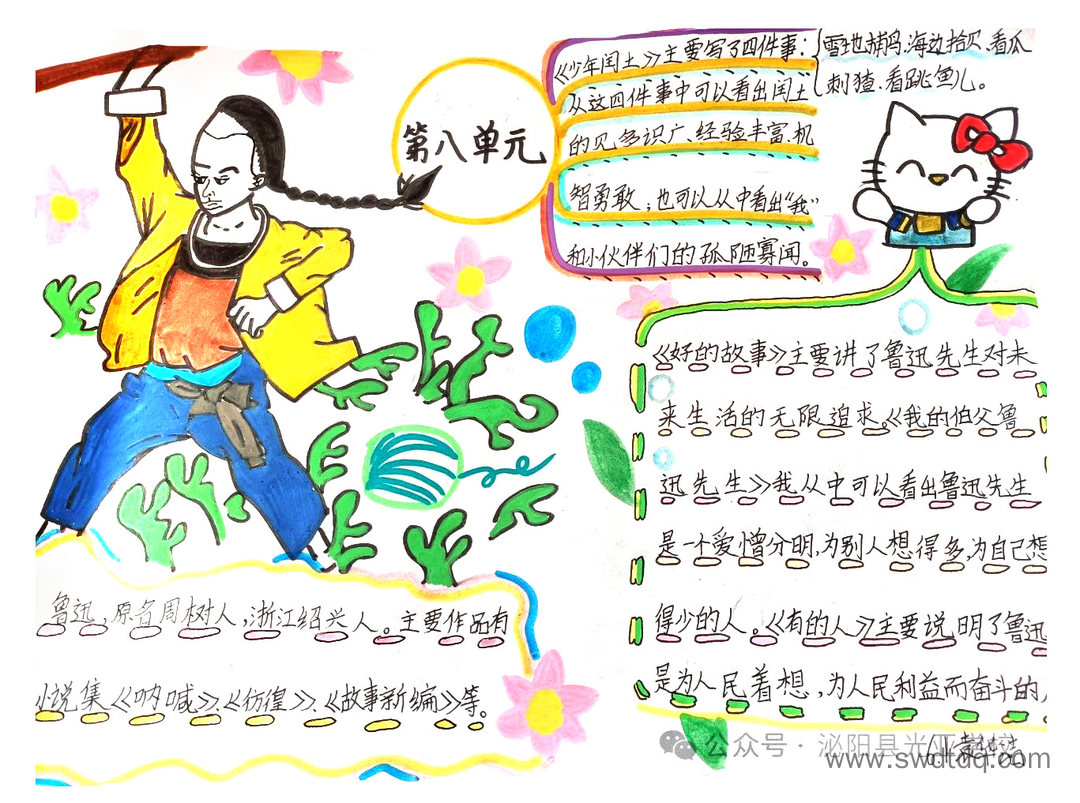 第八单元
《少年闰土》主要写了四件事：雪地捕鸟、海边拾贝、看瓜
刺猹、看跳鱼儿。
从这四件事中可以看出闰土
的见多识广、经验丰富、机
智勇敢；也可以从中看出“我”
和小伙伴们的孤陋寡闻。
《好的故事》主要讲了鲁迅先生对未
来生活的无限追求。《我的伯父鲁
迅先生》我从中可以看出鲁迅先生
是一个爱憎分明，为别人想得多，为自己想
得少的人。《有的人》主要说明了鲁迅
是为人民着想，为人民利益而奋斗的人
鲁迅，原名周树人，浙江绍兴人。主要作品有
小说集《呐喊》、《彷徨》、《故事新编》等。
公众号·泌阳县光亚学校
www.swdtdq.com